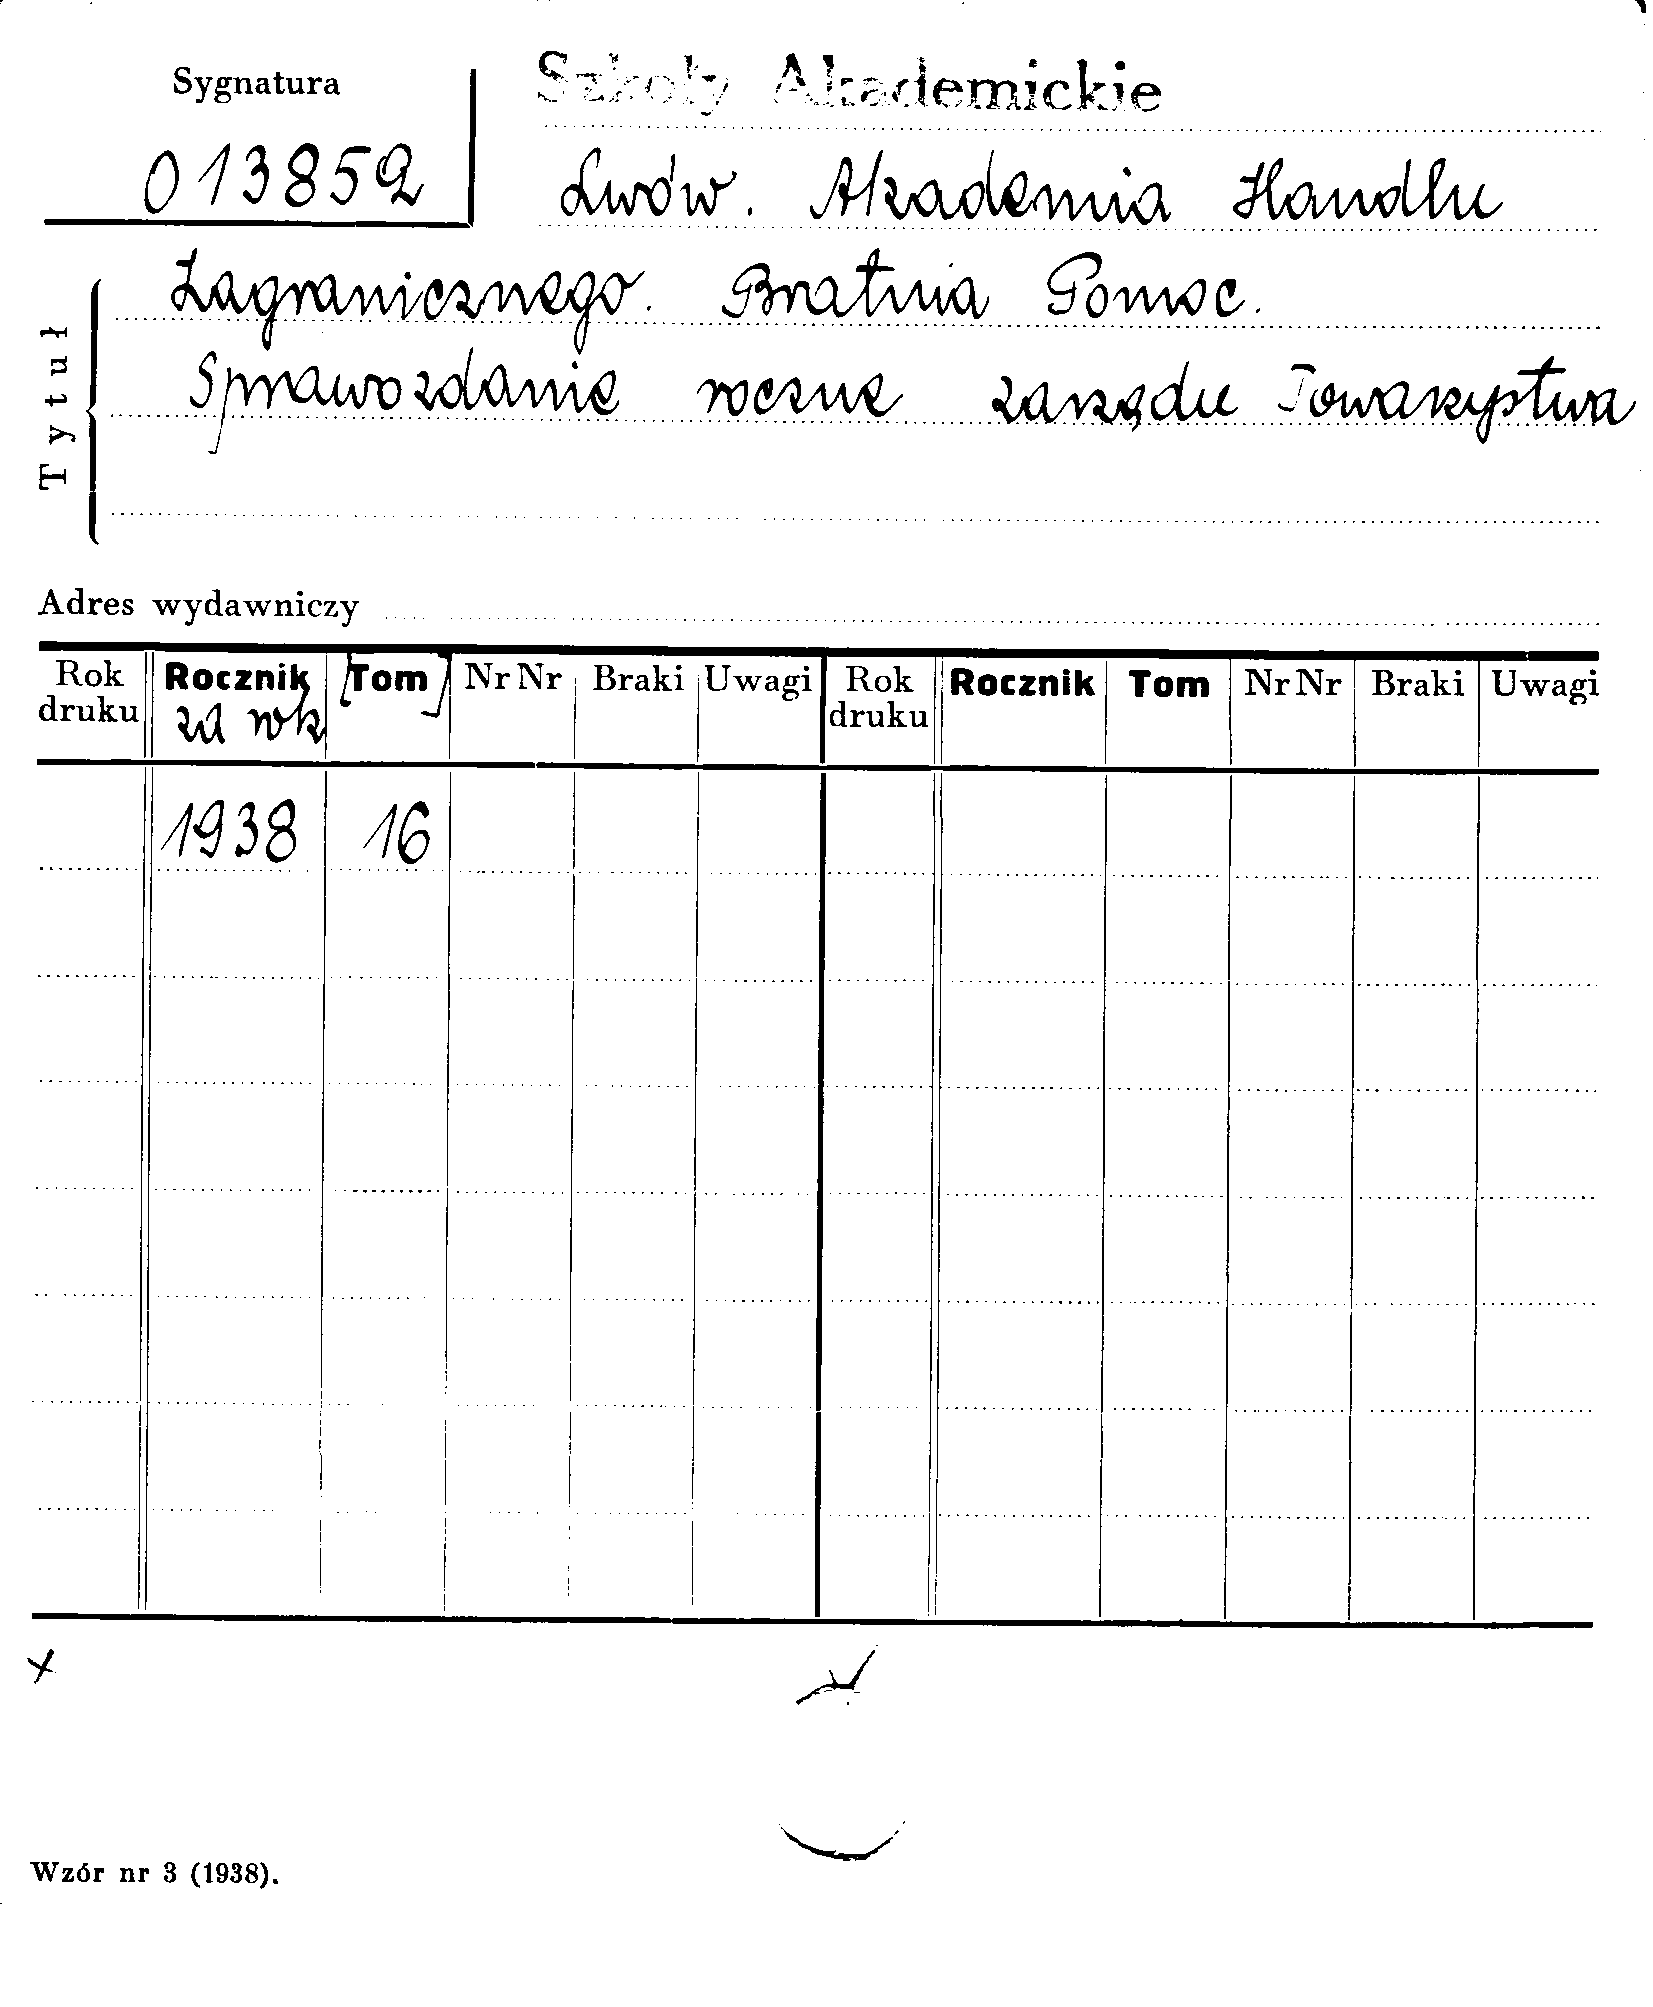 Sygnatura
Szkoły Akademickie
013852
Lwów. Akademia Handlu
Zagranicznego. Bratnia Pomoc.
Sprawozdanie roczne zarządu Towarzystwa
Tytuł
Adres wydawniczy
Rok druku Rocznik [Tom] Nr Nr Braki Uwagi Rok druku Rocznik Tom Nr Nr Braki Uwagi
za rok
1938 16
x
Wzór nr 3 (1938).